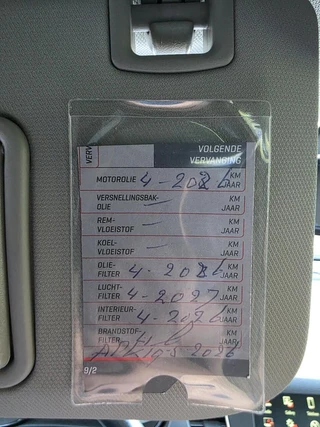 VERV
VOLGENDE
VERVANGING
MOTOROLIE 4-2026 KM
JAAR
VERSNELLINGSBAK- KM
OLIE — JAAR
REM- KM
VLOEISTOF — JAAR
KOEL- KM
VLOEISTOF — JAAR
OLIE- KM
FILTER 4-2026 JAAR
LUCHT- KM
FILTER 4-2027 JAAR
INTERIEUR- KM
FILTER 4-2026 JAAR
BRANDSTOF- KM
FILTER JAAR
2026
9/2